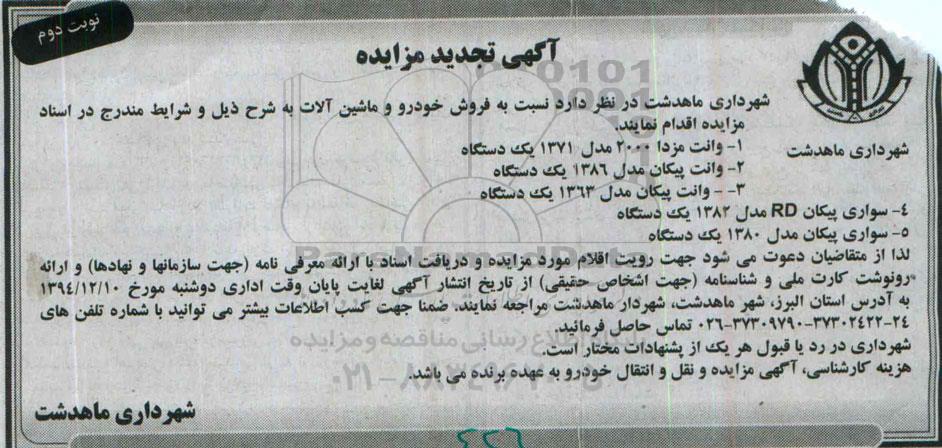 نوبت دوم
آگهی تجدید مزایده
شهرداری ماهدشت در نظر دارد نسبت به فروش خودرو و ماشین آلات به شرح ذیل و شرایط مندرج در اسناد
مزایده اقدام نمایند.
شهرداری ماهدشت
۱- وانت مزدا ۲۰۰۰ مدل ۱۳۷۱ یک دستگاه
۲- وانت پیکان مدل ۱۳۸۶ یک دستگاه
۳- - وانت پیکان مدل ۱۳۶۳ یک دستگاه
۴- سواری پیکان RD مدل ۱۳۸۲ یک دستگاه
۵- سواری پیکان مدل ۱۳۸۰ یک دستگاه
لذا از متقاضیان دعوت می شود جهت رویت اقلام مورد مزایده و دریافت اسناد با ارائه معرفی نامه (جهت سازمانها و نهادها) و ارائه
رونوشت کارت ملی و شناسنامه (جهت اشخاص حقیقی) از تاریخ انتشار آگهی لغایت پایان وقت اداری دوشنبه مورخ ۱۳۹٤/۱۲/۱۰
به آدرس استان البرز، شهر ماهدشت، شهردار ماهدشت مراجعه نمایند. ضمنا جهت کسب اطلاعات بیشتر می توانید با شماره تلفن های
۰۲۶-۳۷۳۰۹۷۹۰-۳۷۳۰۲۴۲۲-۲۴ تماس حاصل فرمائید.
شهرداری در رد یا قبول هر یک از پشنهادات مختار است.
هزینه کارشناسی، آگهی مزایده و نقل و انتقال خودرو به عهده برنده می باشد.
شهرداری ماهدشت
پایگاه اطلاع رسانی مناقصه و مزایده
ParsNamadData